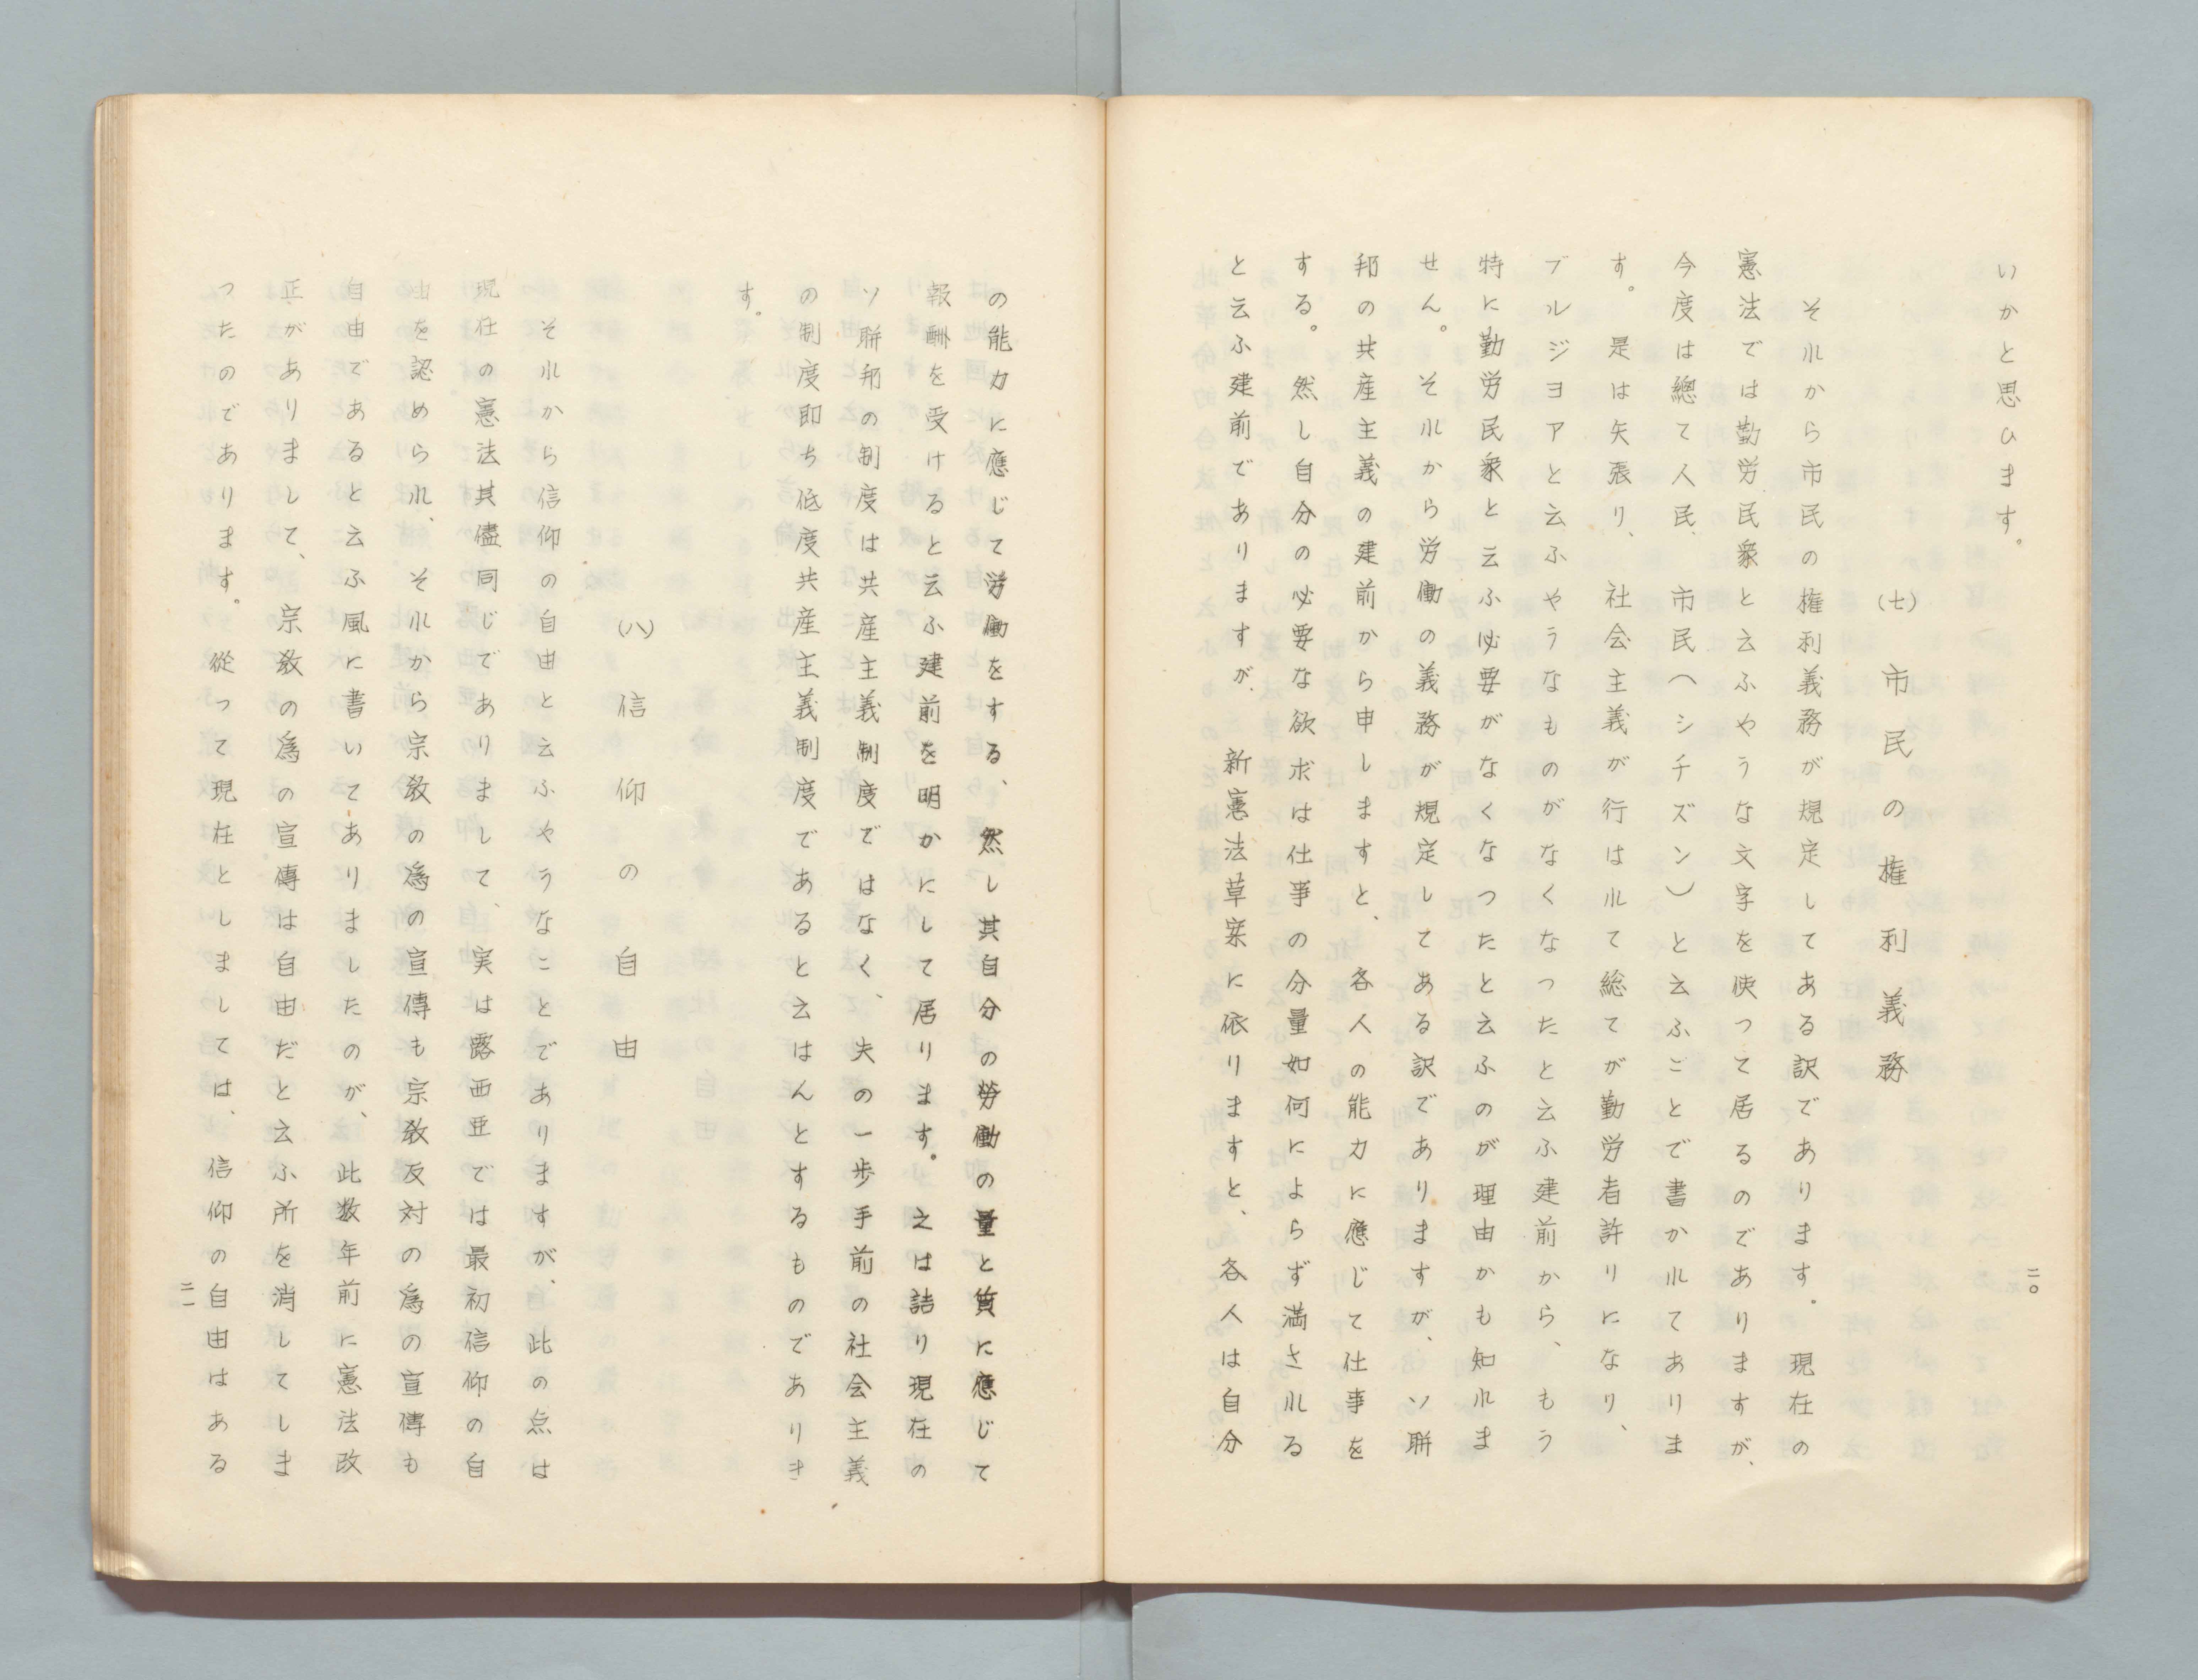 二〇
いかと思ひます。
(七) 市民の権利義務
それから市民の権利義務が規定してある訳であります。現在の
憲法では勤労民衆と云ふやうな文字を使つて居るのでありますが、
今度は總て人民、市民(シチズン)と云ふことで書かれてありま
す。是は矢張り、社会主義が行はれて総てが勤労者許りになり、
ブルジヨアと云ふやうなものがなくなつたと云ふ建前から、もう
特に勤労民衆と云ふ必要がなくなつたと云ふのが理由かも知れま
せん。それから労働の義務が規定してある訳でありますが、ソ聯
邦の共産主義の建前から申しますと、各人の能力に應じて仕事を
する。然し自分の必要な欲求は仕事の分量如何によらず満される
と云ふ建前でありますが、新憲法草案に依りますと、各人は自分
の能力に應じて労働をする、然し其自分の勞働の量と質に應じて
報酬を受けると云ふ建前を明かにして居ります。之は詰り現在の
ソ聯邦の制度は共産主義制度ではなく、夫の一歩手前の社会主義
の制度即ち低度共産主義制度であると云はんとするものでありま
す。
(八) 信仰の自由
それから信仰の自由と云ふやうなことでありますが、此の点は
現在の憲法其儘同じでありまして、実は露西亜では最初信仰の自
由を認められ、それから宗教の為の宣傳も宗教反対の為の宣傳も
自由であると云ふ風に書いてありましたのが、此数年前に憲法改
正がありまして、宗教の為の宣傳は自由だと云ふ所を消してしま
つたのであります。從つて現在としましては、信仰の自由はある
二一